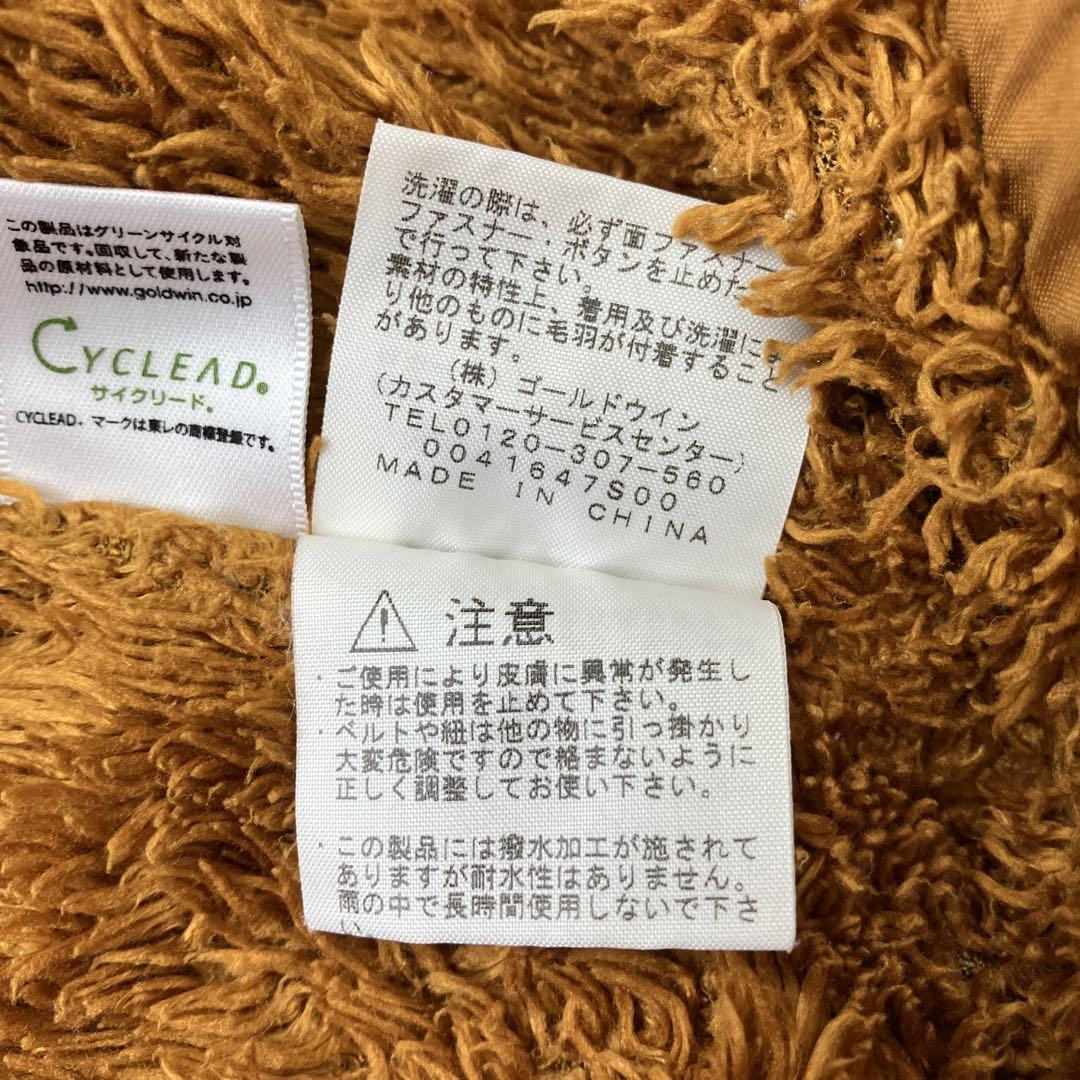 この製品はグリーンサイクル対
象品です。回収して、新たな製
品の原材料として使用します。
http://www.goldwin.co.jp
CYCLEAD®
サイクリード。
CYCLEAD。マークは東レの商標登録です。
洗濯の際は、必ず面ファスナー
ファスナー、ボタンを止めた
で行って下さい。
素材の特性上、着用及び洗濯に
り他のものに毛羽が付着すること
があります。
(株)ゴールドウイン
(カスタマーサービスセンター)
TEL0120-307-560
0041647S00
MADE IN CHINA
⚠ 注意
・ご使用により皮膚に異常が発生し
た時は使用を止めて下さい。
・ベルトや紐は他の物に引っ掛かり
大変危険ですので絡まないように
正しく調整してお使い下さい。
・この製品には撥水加工が施されて
ありますが耐水性はありません。
雨の中で長時間使用しないで下さ